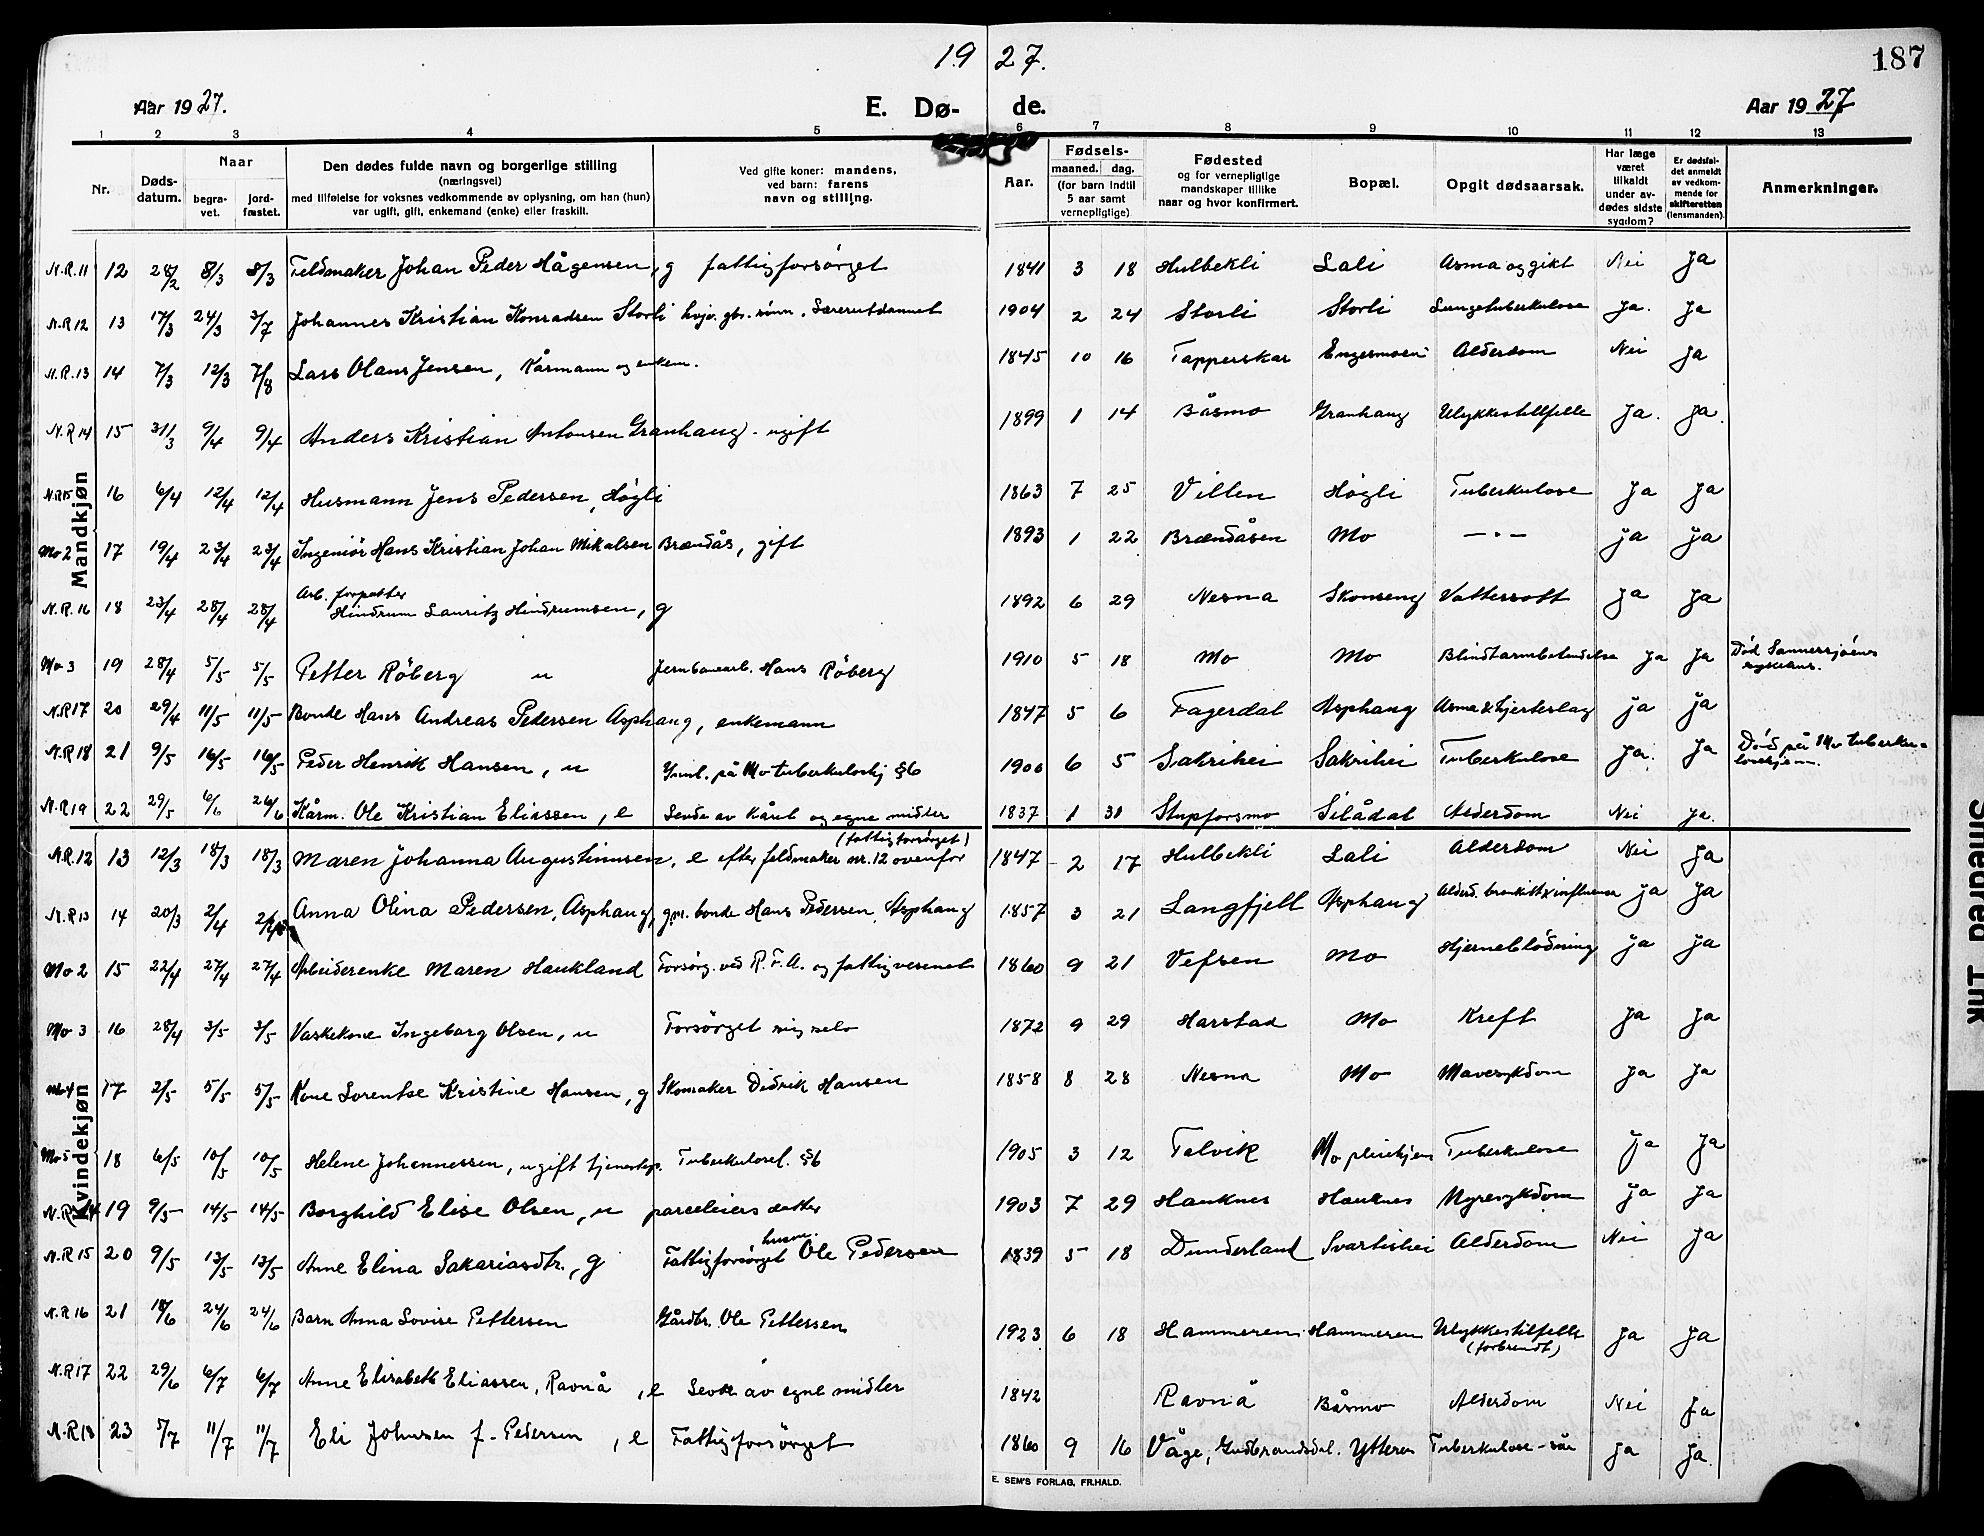 19 27.
187
Aar 1927.
E. Dø- de.
Aar 1927
1 2 3 4 5 6 7 8 9 10 11 12 13
Nr.
Døds-datum.
Naar
begra-vet.
jord-fæstet.
Den dødes fulde navn og borgerlige stilling
(næringsvei)
med tilføielse for voksnes vedkommende av oplysning, om han (hun)
var ugift, gift, enkemand (enke) eller fraskilt.
Ved gifte koner: mandens,
ved barn: farens
navn og stilling.
Aar.
Fødsels-
maaned. dag.
(for barn indtil
5 aar samt
vernepligtige)
Fødested
og for vernepligtige
mandskaper tillike
naar og hvor konfirmert.
Bopæl.
Opgit dødsaarsak.
Har læge
været
tilkaldt
under av-
dødes sidste
sygdom?
Er dødsfal-
det anmeldt
av vedkom-
mende for
skifteretten
(lensmanden).
Anmerkninger.
Mandkjøn
N.R.11 12 28/2 8/3 8/3 Feldmaker Johan Peder Hågensen, g fattigforsörget 1841 3 18 Hulbekli Lali Asma og gikt Nei Ja
N.R12 13 17/3 24/3 3/7 Johannes Kristian Konradsen Storli gbr. sönn. 1904 2 24 Storli Storli Lungetuberkulose Ja. Ja
N.R.13 14 7/3 12/3 7/8 Lars Olaus Jensen, Kårmann og enkem. 1845 10 16 Tapperskar Engesmoen Alderdom Nei Ja
N.R14 15 31/3 9/4 9/4 Anders Kristian Antonsen Granhaug. ugift 1899 1 14 Båsmo Granhaug Ulykkestillfelle Ja. Ja.
N.R15 16 6/4 12/4 12/4 Husmann Jens Pedersen, Högli 1863 7 25 Villen Högli Tuberkulose Ja Ja
Mo 2 17 19/4 23/4 23/4 Ingeniör Hans Kristian Johan Mikalsen Brændås, gift 1893 1 22 Brændåsen Mo —"— Ja Ja
N.R.16 18 23/4 28/4 28/4 Arb. forpakter
Hindrum Lauritz Hindrumsen, g 1892 6 29 Nesna Skonseng Vattersott Ja Ja
Mo 3 19 28/4 5/5 5/5 Petter Röberg u Jernbanearb. Hans Röberg 1910 5 18 Mo Mo Blindtarmbetendelse Ja Ja Död Sannessjöens
sykehus.
N.R17 20 29/4 11/5 11/5 Bonde Hans Andreas Pedersen Asphaug, enkemann 1847 5 6 Fagerdal Asphaug Asma & hjerteslag Ja Ja
N.R18 21 9/5 16/5 16/5 Peder Henrik Hansen, u på Mo tuberkuloshj §6 1900 6 5 Sakrihei Sakrihei Tuberkulose Ja. Ja Död på Mo tuberku-
losehjem.
N.R19 22 29/5 6/6 26/6 Kårm. Ole Kristian Eliassen, e Levde av kåret og egne midler 1837 1 31 Stupforsmo Silådal Alderdom Nei Ja.
Kvindekjøn
N.R.12 13 12/3 18/3 18/3 Maren Johanna Augustinusen, e efter feldmaker nr. 12 ovenfor (fattigforsörget) 1847 2 17 Hulbekli Lali Alderdom Nei Ja
N.R13 14 20/3 2/4 2/4 Anna Olina Pedersen, Asphaug, bonde Hans Pedersen, Asphaug 1857 3 21 Langfjell Asphaug Alderd. bronkitt & influensa Ja Ja
Mo 2 15 22/4 27/4 27/4 Arbeiderenke Maren Haukland Forsörg. ved R.F.A. og fattigvesenet 1860 9 21 Vefsen Mo Hjerneblödning Ja Ja
Mo 3 16 28/4 3/5 3/5 Vaskekone Ingeborg Olsen, u Forsörget sig selv 1872 9 29 Harstad Mo Kreft Ja Ja
Mo 4 17 2/5 5/5 5/5 Kone Lorentse Kristine Hansen, g Skomaker Didrik Hansen 1858 8 28 Nesna Mo Mavesykdom Ja Ja
Mo 5 18 6/5 10/5 10/5 Helene Johannessen, ugift tjenestep. Tuberkulosel. §6 1905 3 12 Talvik Mo pleiehjem Tuberkulose Ja Ja
N.R.14 19 9/5 14/5 14/5 Borghild Elise Olsen, u parceleiers datter 1903 7 29 Hauknes Hauknes Nyresykdom Ja Ja
N.R15 20 9/5 13/5 13/5 Anne Elina Sakariasdtr., g Fattigforsörget husm. Ole Pedersen 1839 5 18 Dunderland Svartishei Alderdom Nei Ja
N.R16 21 18/6 24/6 24/6 Barn Anna Lovise Pettersen Gårdbr. Ole Pettersen 1923 6 18 Hammeren Hammeren Ulykkestilfelle
(forbrendt) Ja Ja
N.R17 22 29/6 6/7 6/7 Anne Elisabeth Eliassen, Ravnå, e Levde av egne midler 1842 Ravnå Båsmo Alderdom Nei Ja
N.R18 23 5/7 11/7 11/7 Eli Johnsen f. Pedersen, e Fattigforsörget 1860 9 16 Våge, Gudbrandsdal. Ytteren Tuberkulose - sår Ja Ja.
E. SEM'S FORLAG, FR.HALD.